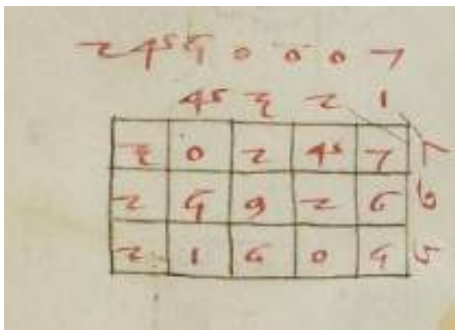 2 4 5 0 0 0 7
4 3 2 1
3 0 2 4 7 7
2 5 9 2 6 6
2 1 6 0 5 5